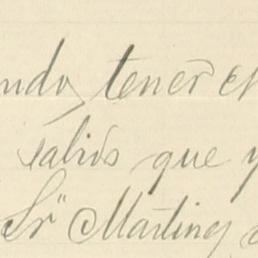 ndo, tener en
Talios que y
Sr" Martinez